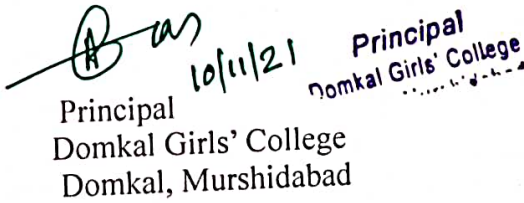 10/11/21
Principal
Domkal Girls' College
Principal
Domkal Girls' College
Domkal, Murshidabad